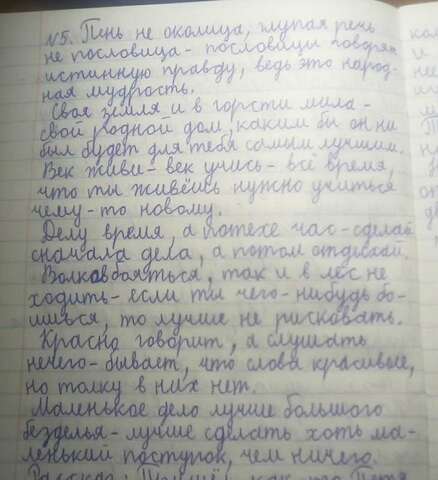 №5. Пень не околица, глупая речь
не пословица - пословицы говорят
истинную правду, ведь это народ-
ная мудрость.
Своя земля и в горсти мила -
свой родной дом, каким бы он ни
был будет для тебя самым лучшим.
Век живи - век учись - всё время,
что ты живёшь нужно учиться
чему-то новому.
Делу время, а потехе час - сделай
сначала дела, а потом отдыхай.
Волков бояться, так и в лес не
ходить - если ты чего-нибудь бо-
ишься, то лучше не рисковать.
Красно говорит, а слушать
нечего - бывает, что слова красивые,
но толку в них нет.
Маленькое дело лучше большого
безделья - лучше сделать хоть ма-
ленький поступок, чем ничего.